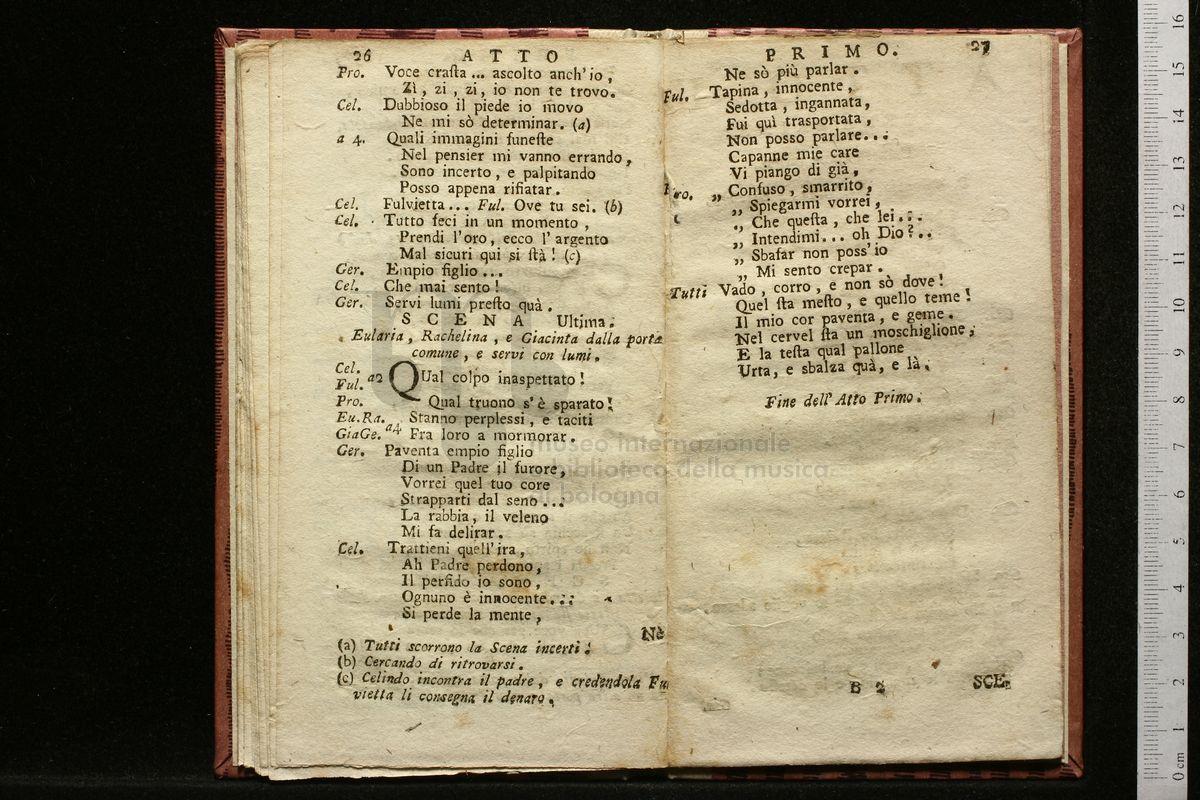 26 ATTO
Pro. Voce crasta ... ascolto anch' io ,
Zì , zi , zi , io non te trovo.
Cel. Dubbioso il piede io movo
Ne mi sò determinar. (a)
a 4. Quali immagini funeste
Nel pensier mi vanno errando ,
Sono incerto , e palpitando
Posso appena rifiatar.
Cel. Fulvietta ... Ful. Ove tu sei. (b)
Cel. Tutto feci in un momento ,
Prendi l'oro, ecco l' argento
Mal sicuri qui si stà ! (c)
Ger. Empio figlio ...
Cel. Che mai sento !
Ger. Servi lumi presto quà .
SCENA Ultima.
Eularia, Rachelina , e Giacinta dalla porta
comune , e servi con lumi.
Cel. Ful. a2 QUal colpo inaspettato !
Pro. Qual truono s' è sparato !
Eu.Ra. Stanno perplessi , e taciti
GiaGe. a4 Fra loro a mormorar .
Ger. Paventa empio figlio
Di un Padre il furore,
Vorrei quel tuo core
Strapparti dal seno ...
La rabbia, il veleno
Mi fa delirar .
Cel. Trattieni quell' ira ,
Ah Padre perdono,
Il perfido io sono ,
Ognuno è innocente...
Si perde la mente ,
Nè
(a) Tutti scorrono la Scena incerti .
(b) Cercando di ritrovarsi .
(c) Celindo incontra il padre , e credendola Ful
vietta li consegna il denaro.
PRIMO. 27
Ne sò più parlar .
Ful. Tapina , innocente ,
Sedotta , ingannata,
Fui quì trasportata ,
Non posso parlare...
Capanne mie care
Vi piango di già ,
Pro. „ Confuso , smarrito,
„ Spiegarmi vorrei ,
„ Che questa , che lei ...
„ Intendimi... oh Dio?..
„ Sbafar non poss' io
„ Mi sento crepar .
Tutti Vado , corro , e non sò dove !
Quel sta mesto , e quello teme !
Il mio cor paventa , e geme .
Nel cervel sta un moschiglione,
E la testa qual pallone
Urta, e sbalza quà, e là .
Fine dell' Atto Primo.
B 2
SCE-
museo internazionale
biblioteca della musica
di bologna
0 cm 1 2 3 4 5 6 7 8 9 10 11 12 13 14 15 16